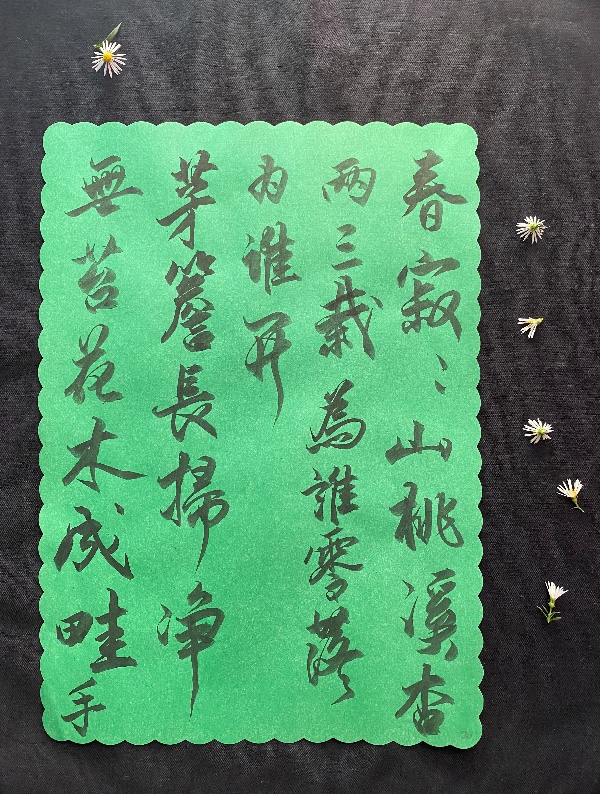 春寂〻山桃溪杏
兩三栽為誰零落
为谁開
茅簷長掃净
無苔花木成畦手